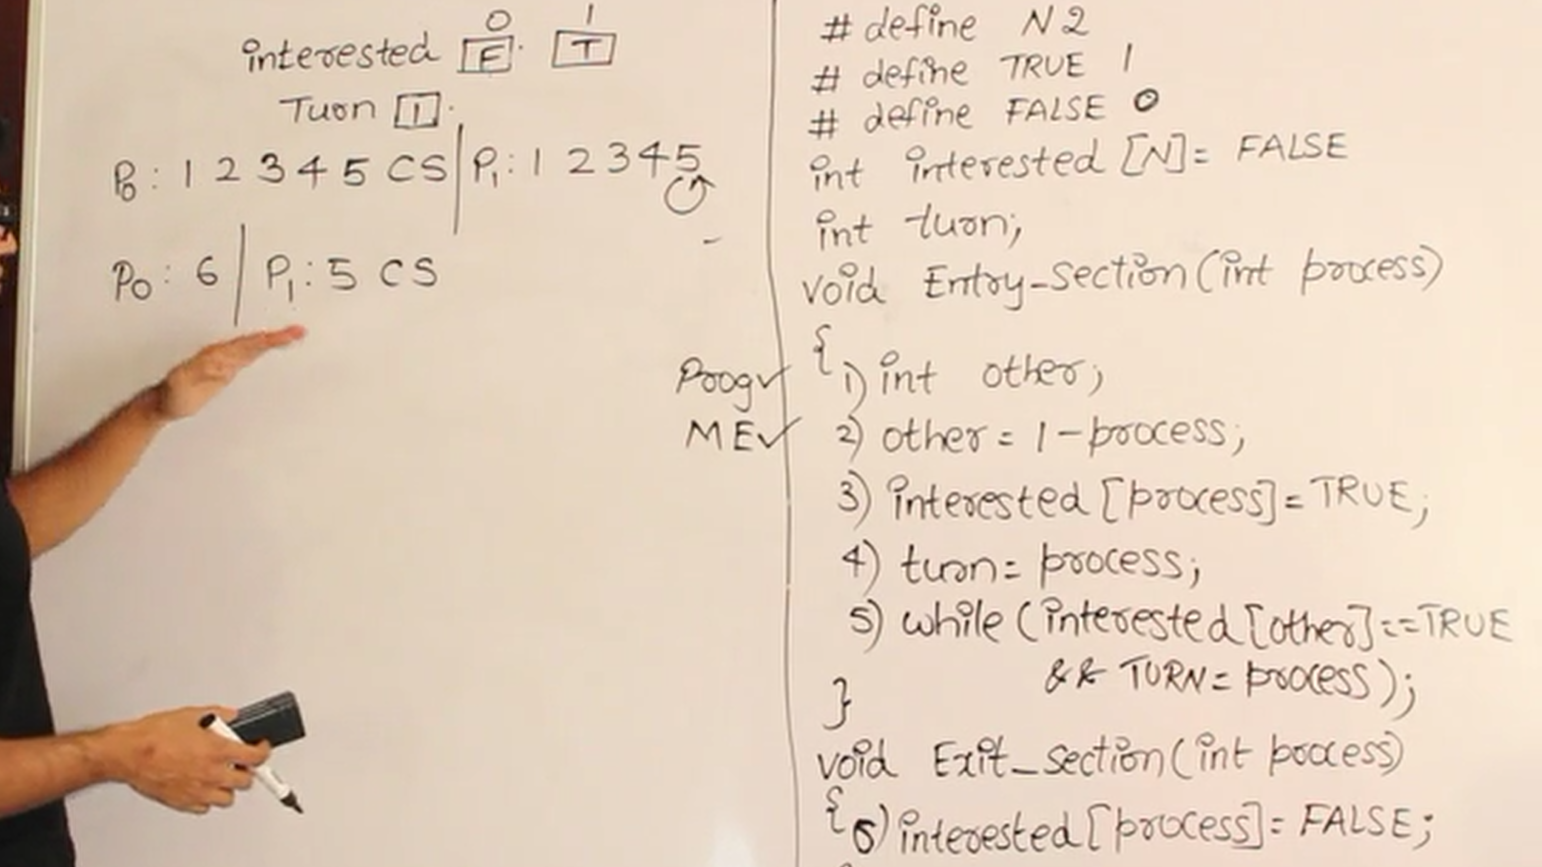 0 1
interested F T
Turn 1
P0: 1 2 3 4 5 CS | P1: 1 2 3 4 5
P0: 6 | P1: 5 CS
Prog ✓
ME ✓
# define N 2
# define TRUE 1
# define FALSE 0
int interested [N]= FALSE
int turn;
void Entry_Section(int process)
{ 1) int other;
2) other = 1 - process;
3) interested [process] = TRUE;
4) turn = process;
5) while (interested [other] == TRUE
&& TURN = process);
}
void Exit_section(int process)
{ 6) interested [process] = FALSE;